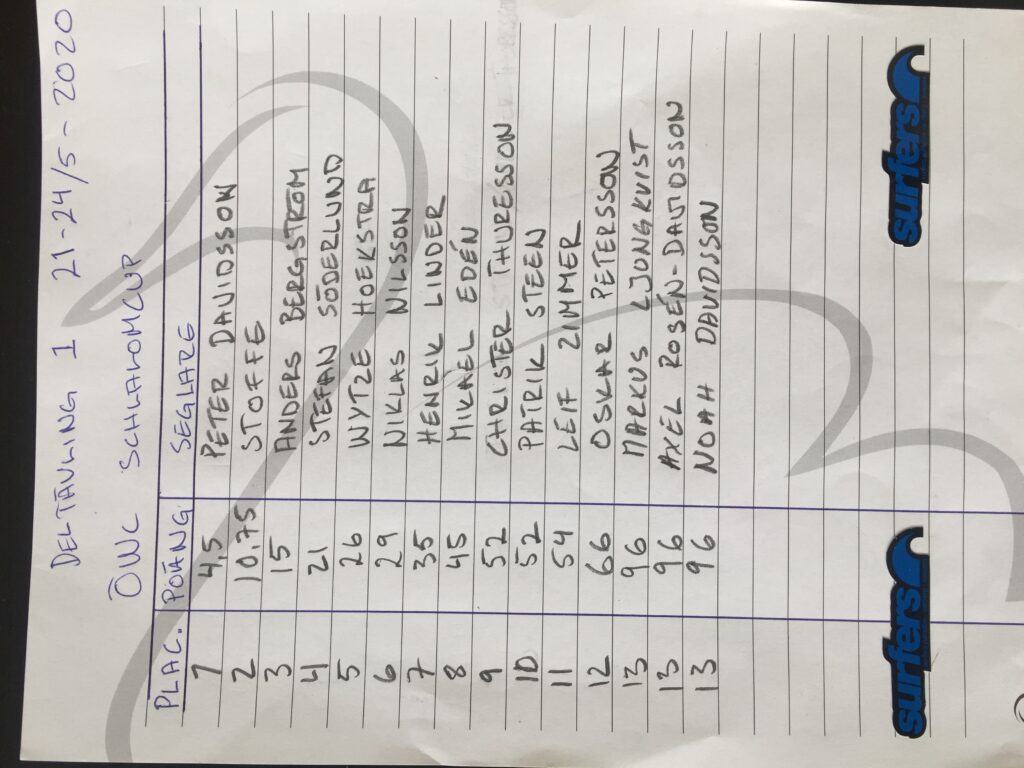 DELTÄVLING 1 21-24/5-2020
ÖWC SCHLAHOMCUP
PLAC. POÄNG SEGLARE
1 4.5 PETER DAVIDSSON
2 10.75 STOFFE
3 15 ANDERS BERGSTRÖM
4 21 STEFAN SÖDERLUND
5 26 WYTZE HOEKSTRA
6 29 NIKLAS NILSSON
7 35 HENRIK LINDER
8 45 MIKAEL EDÉN
9 52 CHRISTER THURESSON
10 52 PATRIK STEEN
11 54 LEIF ZIMMER
12 66 OSKAR PETERSSON
13 96 MARKUS LJUNGKVIST
13 96 AXEL ROSÉN-DAVIDSSON
13 96 NOAH DAVIDSSON
surfers surfers